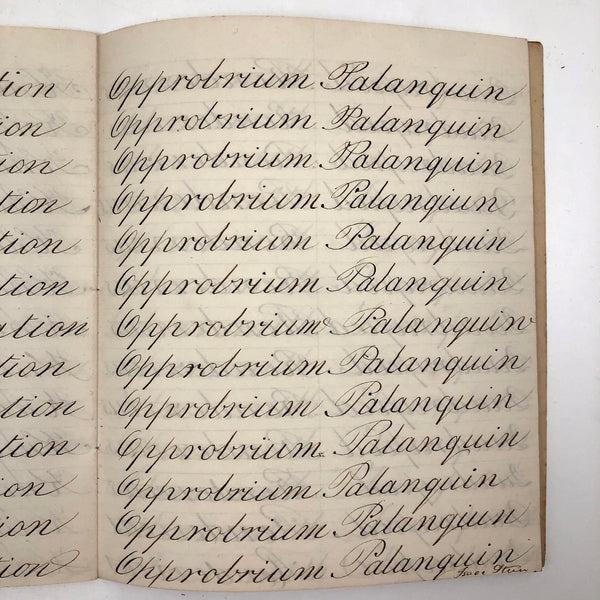 tion Opprobrium Palanquin
ion Opprobrium Palanquin
ion Opprobrium Palanquin
tion Opprobrium Palanqiun
tion Opprobrium Palanquin
tion Opprobrium Palanquin
ation Opprobrium Palanquin
tion Opprobrium Palanquin
tion Opprobrium Palanquin
tion Opprobrium Palanquin
ion Opprobrium Palanquin
ion Opprobrium Palanqiun
ion Opprobrium Palanquin